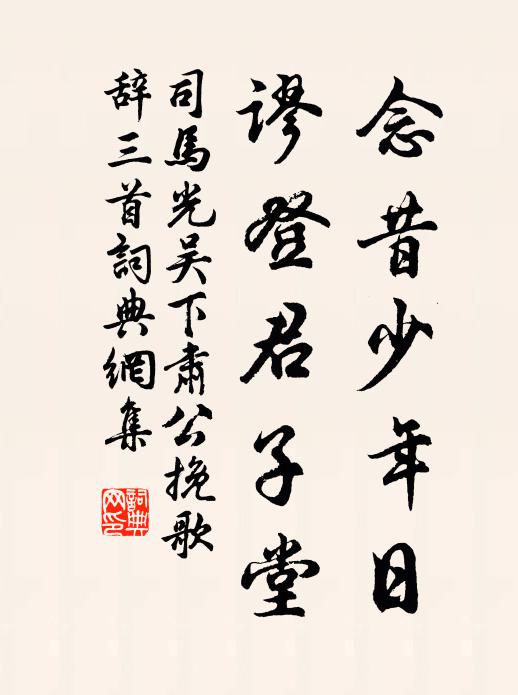 念昔少年日
谬登君子堂
司馬光吴下肅公挽歌
辞三首詞典網集
詞典
网印